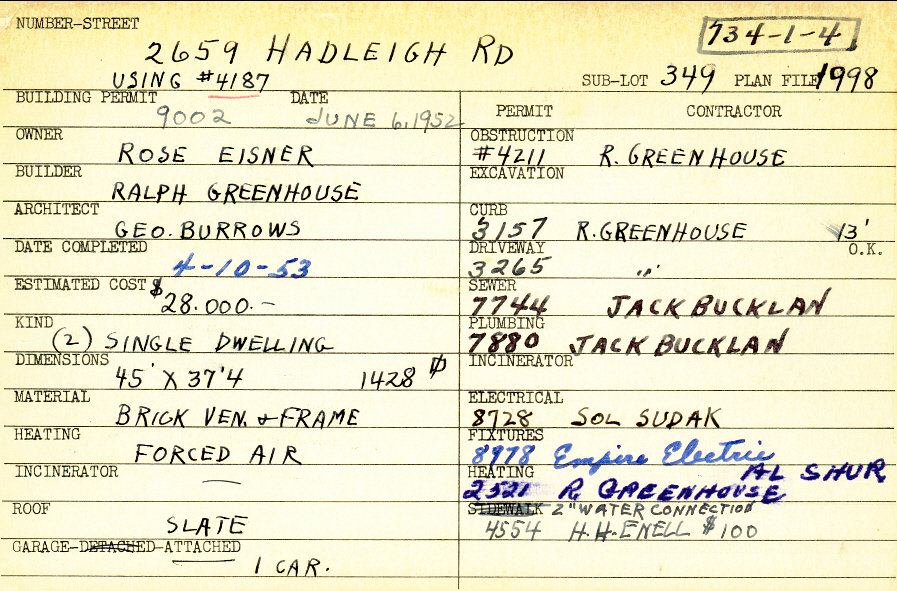 NUMBER-STREET
734-1-4
2659 HADLEIGH RD
USING #4187
SUB-LOT 349 PLAN FILE 1998
BUILDING PERMIT DATE
9002 JUNE 6, 1952
PERMIT CONTRACTOR
OWNER
ROSE EISNER
OBSTRUCTION
#4211 R. GREENHOUSE
BUILDER
RALPH GREENHOUSE
EXCAVATION
ARCHITECT
GEO. BURROWS
CURB
3157 R. GREENHOUSE 13'
O.K.
DATE COMPLETED
4-10-53
DRIVEWAY
3265 "
ESTIMATED COST $
28.000.-
SEWER
7744 JACK BUCKLAN
KIND
(2) SINGLE DWELLING
PLUMBING
7880 JACK BUCKLAN
DIMENSIONS
45' X 37'4 1428
INCINERATOR
MATERIAL
BRICK VEN. & FRAME
ELECTRICAL
8728 SOL SUDAK
HEATING
FORCED AIR
FIXTURES
8978 Empire Electric
AL SHUR
INCINERATOR
—
HEATING
2521 R GREENHOUSE
ROOF
SLATE
SIDEWALK 2" WATER CONNECTION
4554 H.H. ENELL $100
GARAGE-DETACHED-ATTACHED
1 CAR.